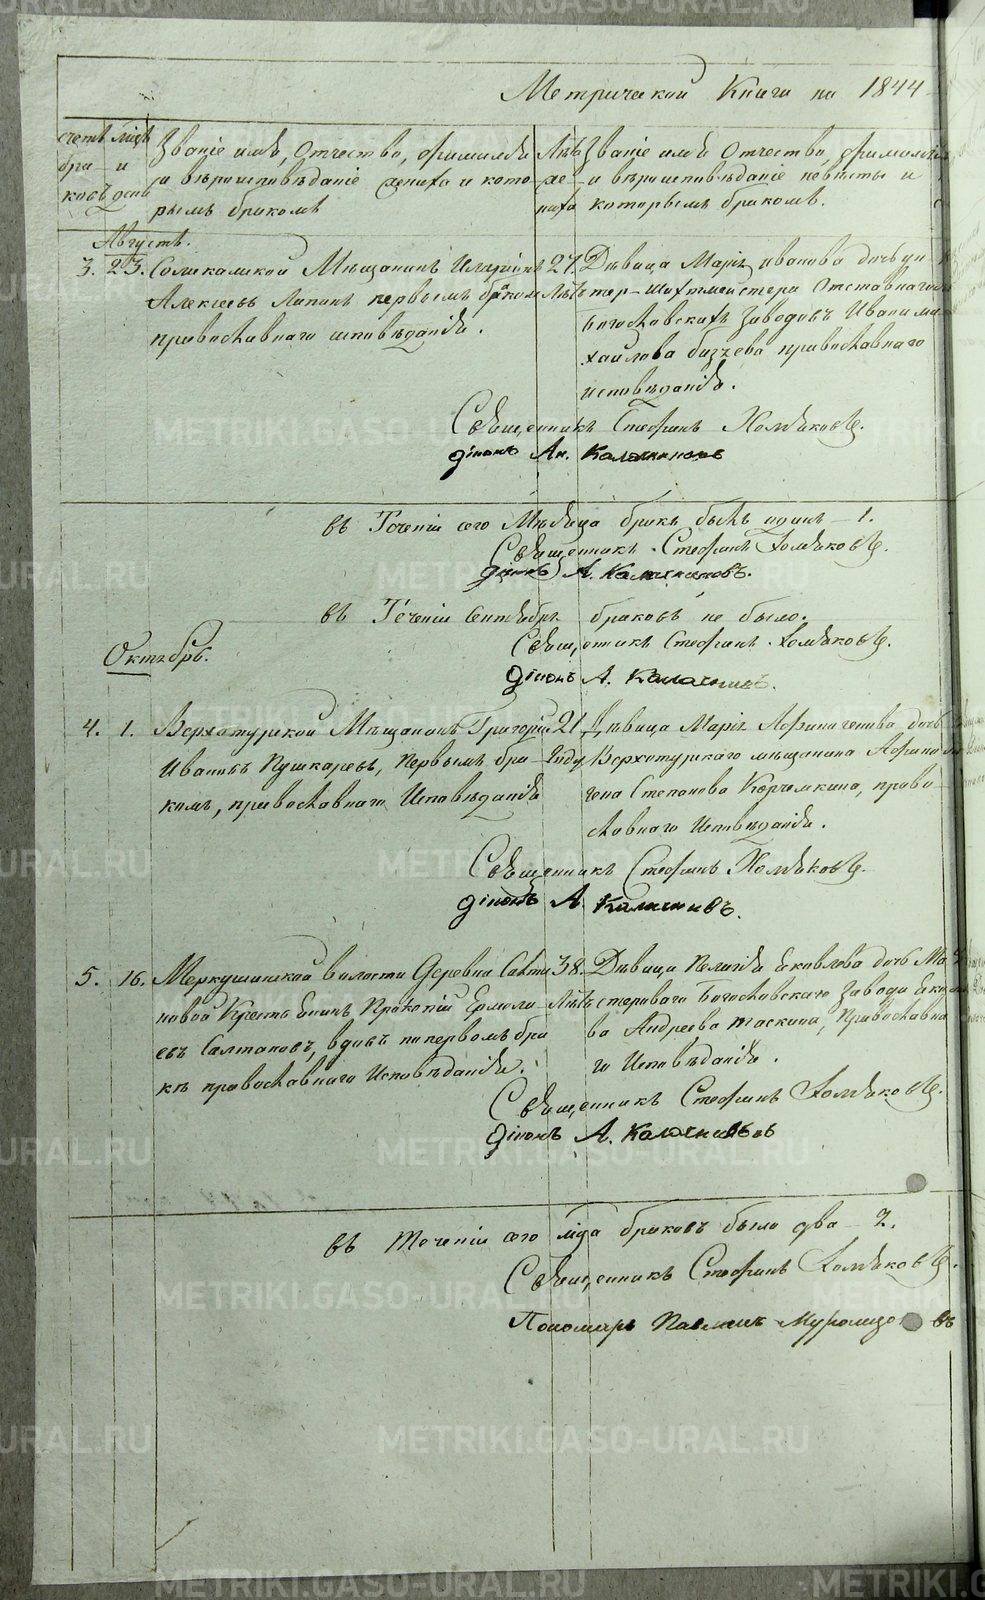 Метрической Книги на 1844
счетъ бра ковъ
мѣся и день
Званіе имя, Отчество, фамилія
и вѣроисповѣданіе жениха и кото
рымъ бракомъ
Лѣта же ниха
Званіе имя Отчество, фамилія
и вѣроисповѣданіе невѣсты и
которымъ бракомъ.
Августъ.
3. 23. Соликамской Мѣщанинъ Иларіонъ
Алексѣевъ Лапинъ первымъ бракомъ
православнаго исповѣданія.
27 Лѣтъ
Дѣвица Марія Иванова дочь ун
теръ-Шихтмейстера Отставнаго
Богословскихъ Заводовъ Ивана Ми
хайлова православнаго
исповѣданія.
Священникъ Стефанъ Хомяковъ.
діаконъ Ал. Калачниковъ
въ Теченіи сего Мѣсяца бракъ былъ одинъ - 1.
Священникъ Стефанъ Хомяковъ.
діаконъ А. Калачниковъ.
въ Теченіи Сентября браковъ не было.
Священникъ Стефанъ Хомяковъ.
діаконъ А. Калачниковъ.
Октябрь.
4. 1. Верхотурской Мѣщанинъ Григорій
Ивановъ Пушкаревъ, первымъ бра
комъ, православнаго Исповѣданія
21 Году
Дѣвица Марія Афиногенова дочь
Верхотурскаго мѣщанина Афино
гена Степанова Корчемкина, право
славнаго Исповѣданія.
Священникъ Стефанъ Хомяковъ.
діаконъ А. Калачниковъ.
5. 16. Меркушинской волости Деревни Салта
новой Крестьянинъ Прокопій Ермола
евъ Салтановъ, вдовъ по первомъ бра
кѣ православнаго Исповѣданія.
38. Лѣтъ
Дѣвица Пелагія Яковлева дочь Ма
стероваго Богословскаго Завода Яко
ва Андреева Таскина, Православна
го Исповѣданія.
Священникъ Стефанъ Хомяковъ.
діаконъ А. Калачниковъ
въ Теченіи сего мѣсяца браковъ было два - 2.
Священникъ Стефанъ Хомяковъ.
Пономарь Павлинъ
METRIKI.GASO-URAL.RU